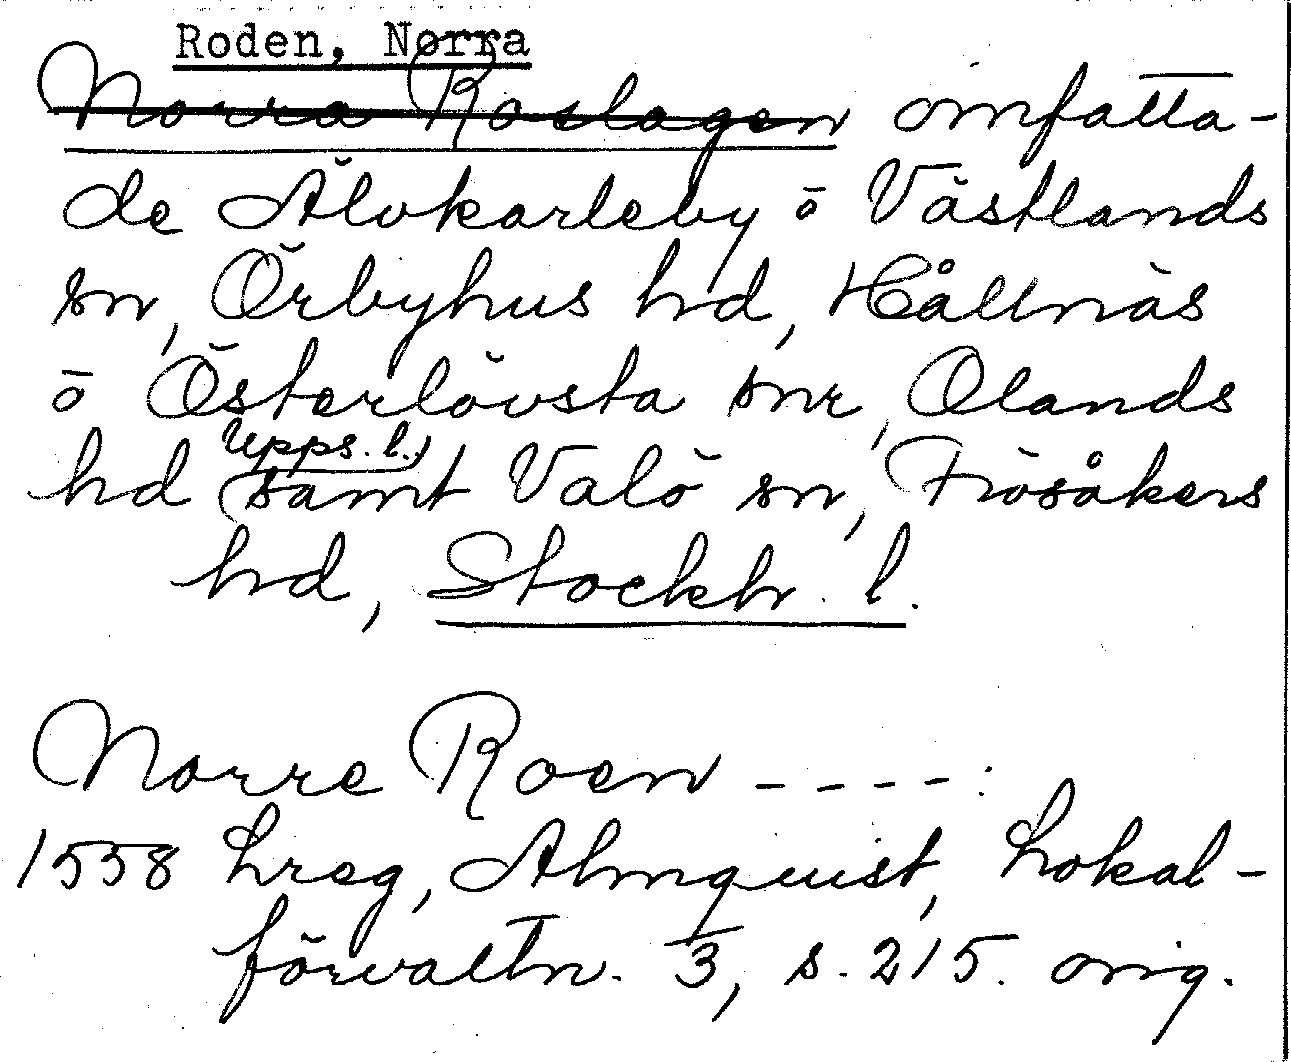 Roden, Norra
Norra Roslagen omfatta-
de Älvkarleby o Västlands
sn, Örbyhus hd, Hållnäs
o Österlövsta snr, Olands
hd (Upps. l.) samt Valö sn, Frösåkers
hd, Stockh. l.
Norre Roen ----:
1558 Lreg, Almquist, Lokal-
förvaltn. 3, s. 215. orig.